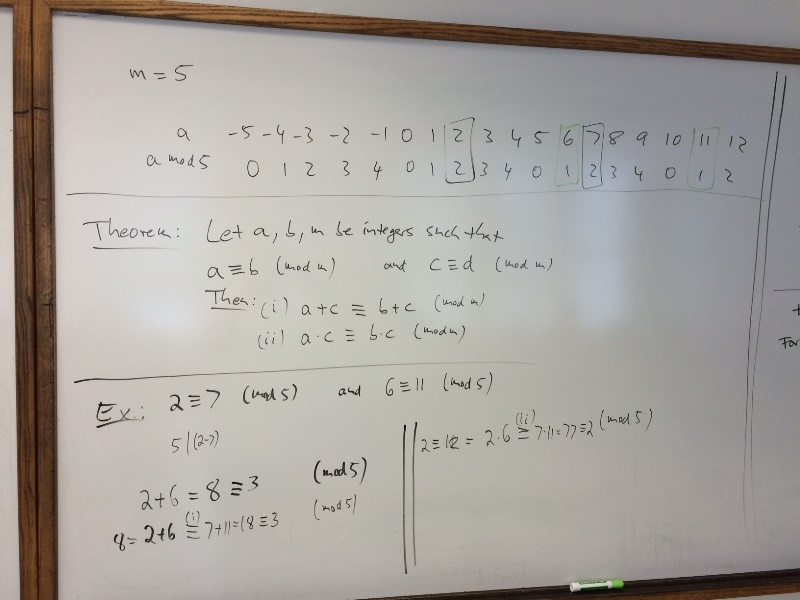 m = 5
a -5 -4 -3 -2 -1 0 1 2 3 4 5 6 7 8 9 10 11 12
a mod 5 0 1 2 3 4 0 1 2 3 4 0 1 2 3 4 0 1 2
Theorem: Let a, b, m be integers such that
a ≡ b (mod m) and c ≡ d (mod m)
Then: (i) a + c ≡ b + c (mod m)
(ii) a · c ≡ b · c (mod m)
Ex.: 2 ≡ 7 (mod 5) and 6 ≡ 11 (mod 5)
5 | (2-7)
2 + 6 = 8 ≡ 3 (mod 5)
8 = 2+6 (i) ≡ 7+11 = 18 ≡ 3 (mod 5)
2 ≡ 12 = 2·6 (ii) ≡ 7·11 = 77 ≡ 2 (mod 5)
For